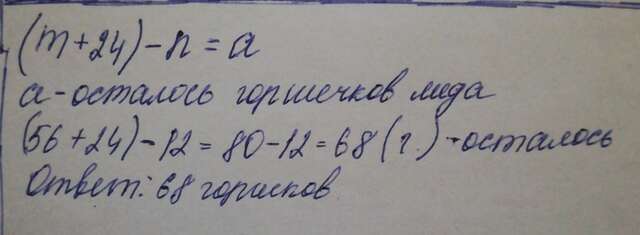 (m+24)-n=a
а-осталось горшечков мида
(56+24)-12=80-12=68(г.)-осталось
Ответ: 68 горшков